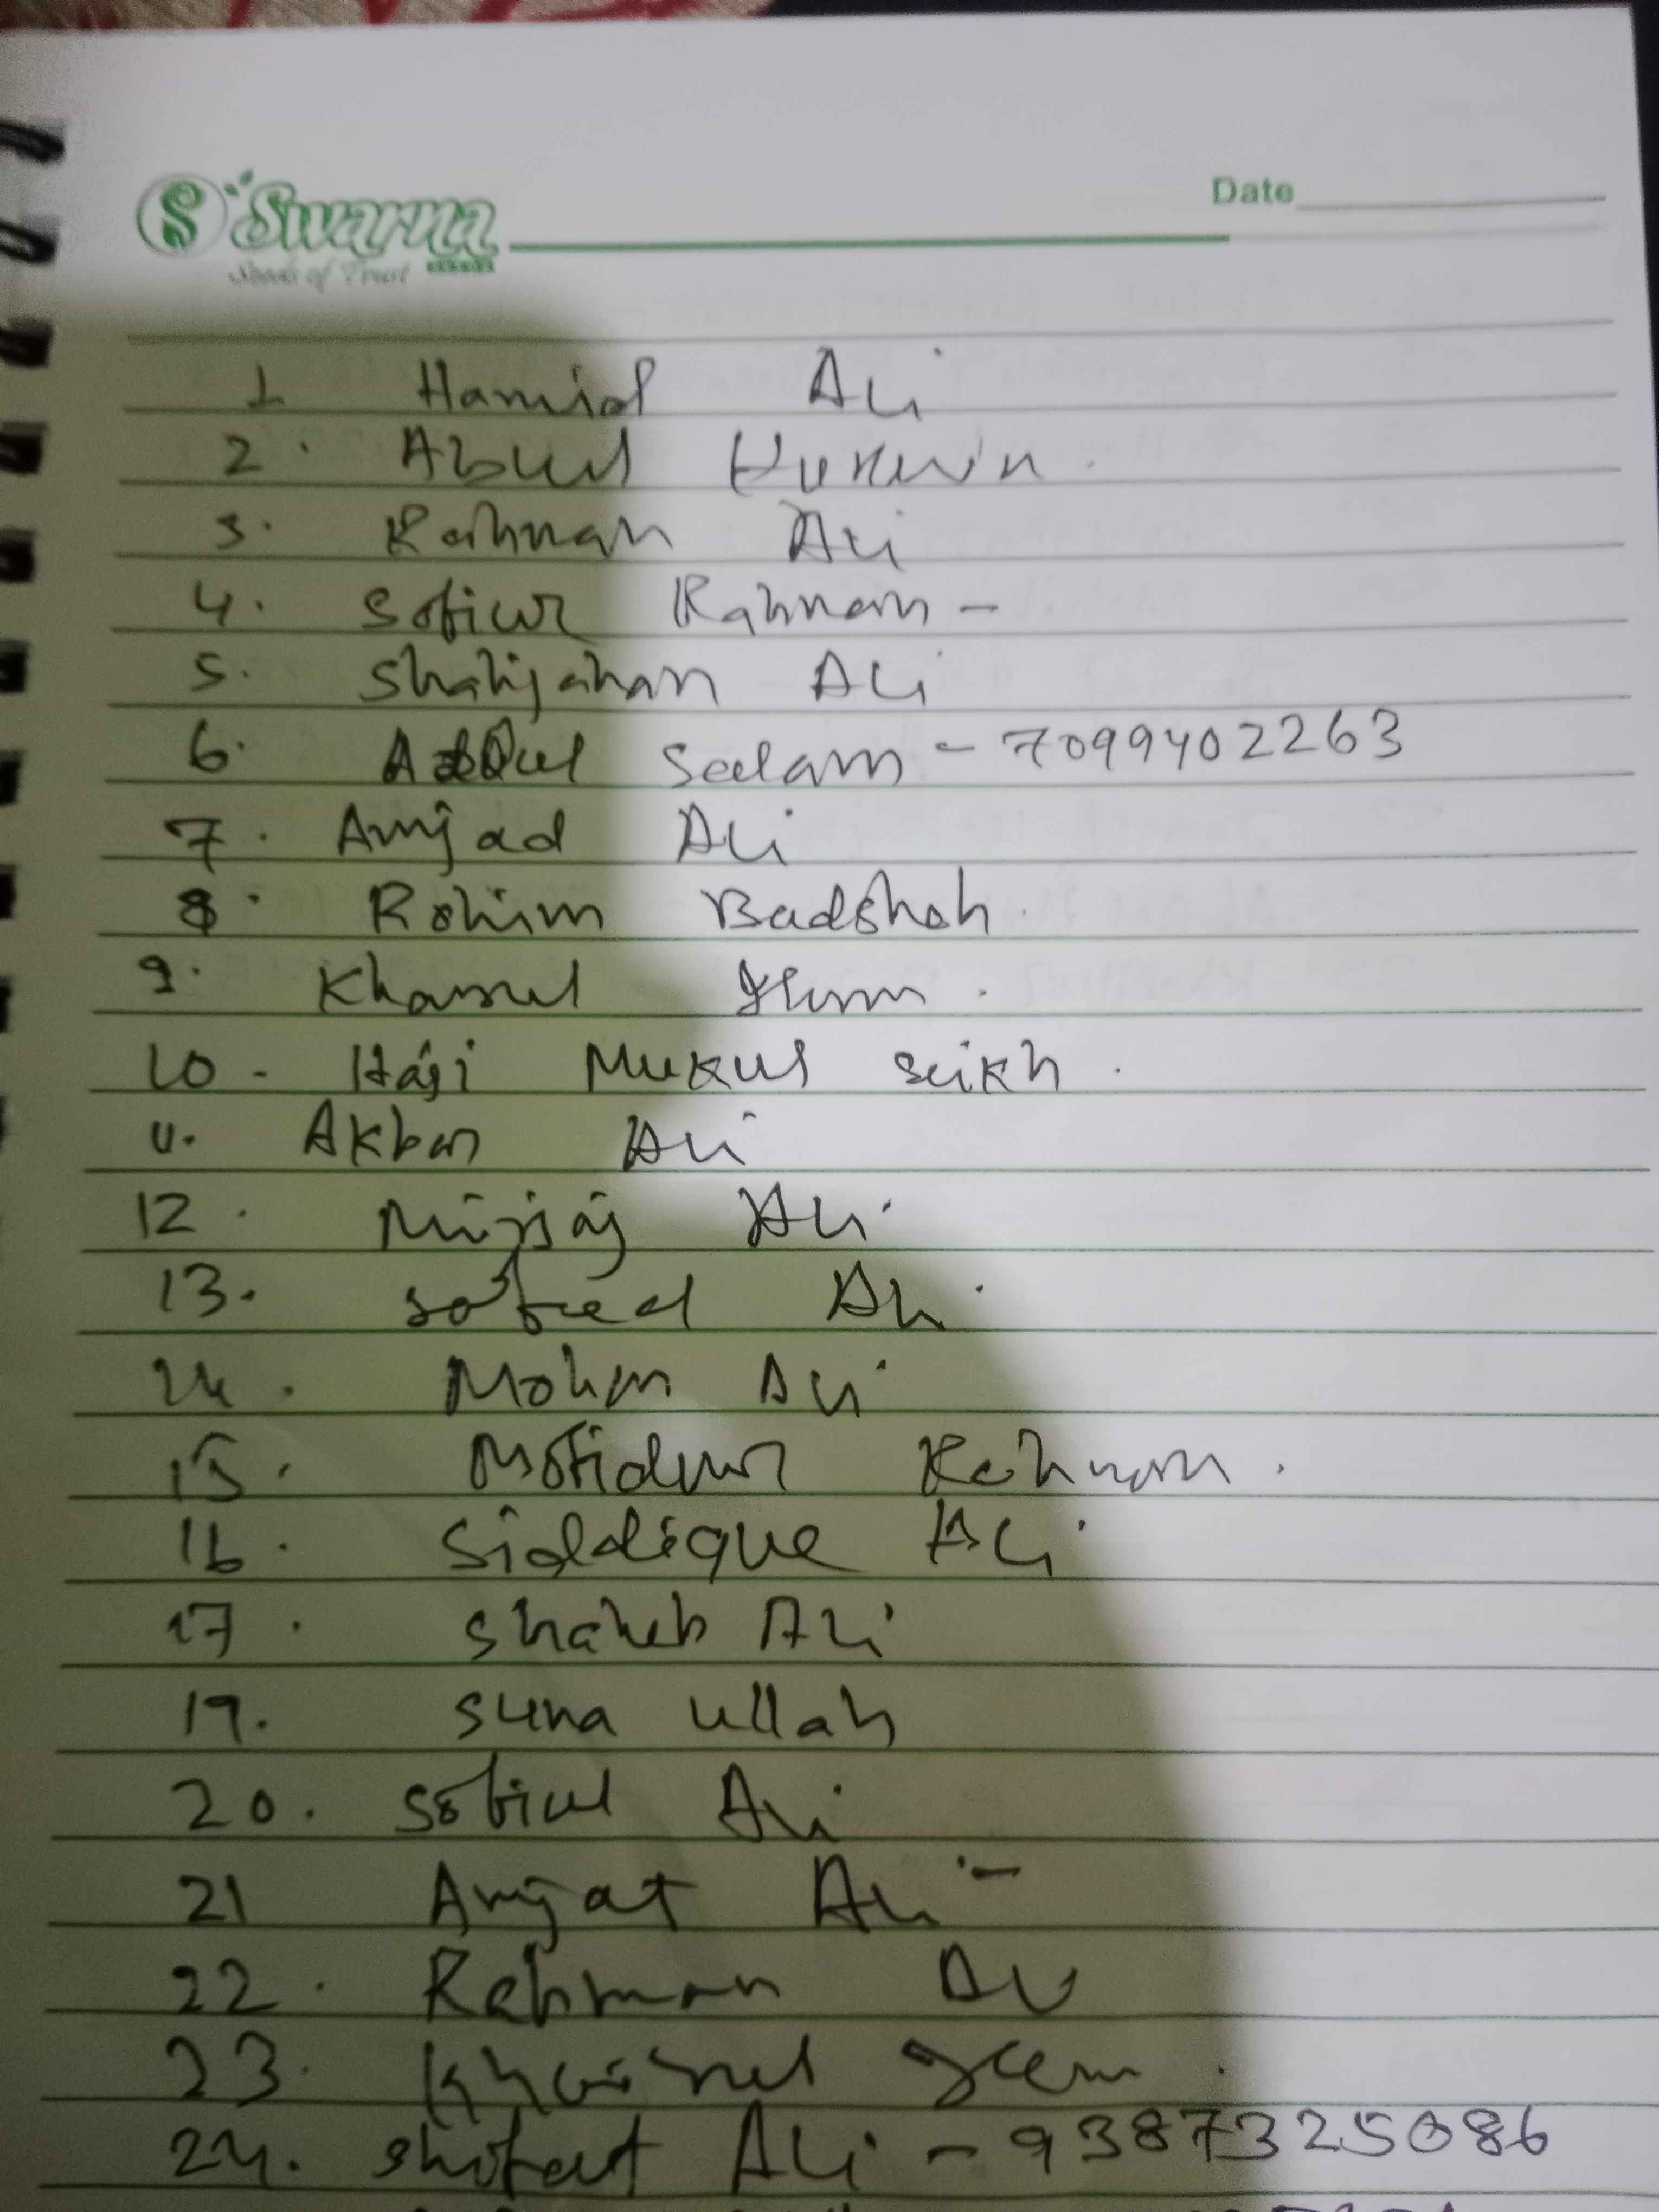 S Swarna
Seeds of Trust
Date
1 Hamid Ali
2. Abul Hussain.
3. Rahman Ali
4. Sofiur Rahman -
5. Shahjahan Ali
6. Abdul Salam - 7099402263
7. Amjad Ali
8. Rohim Badshah.
9. Islam.
10. Haji Mukul Seikh.
11. Akbar Ali
12. Ali
13. Ali
14. Ali
15. Rahman.
16. Siddique Ali
17. Shaheb Ali
19. Suna ullah
20. Sofiul Ali
21 Amjat Ali -
22. Rehman Ali
23.
24. Ali - 9387325086